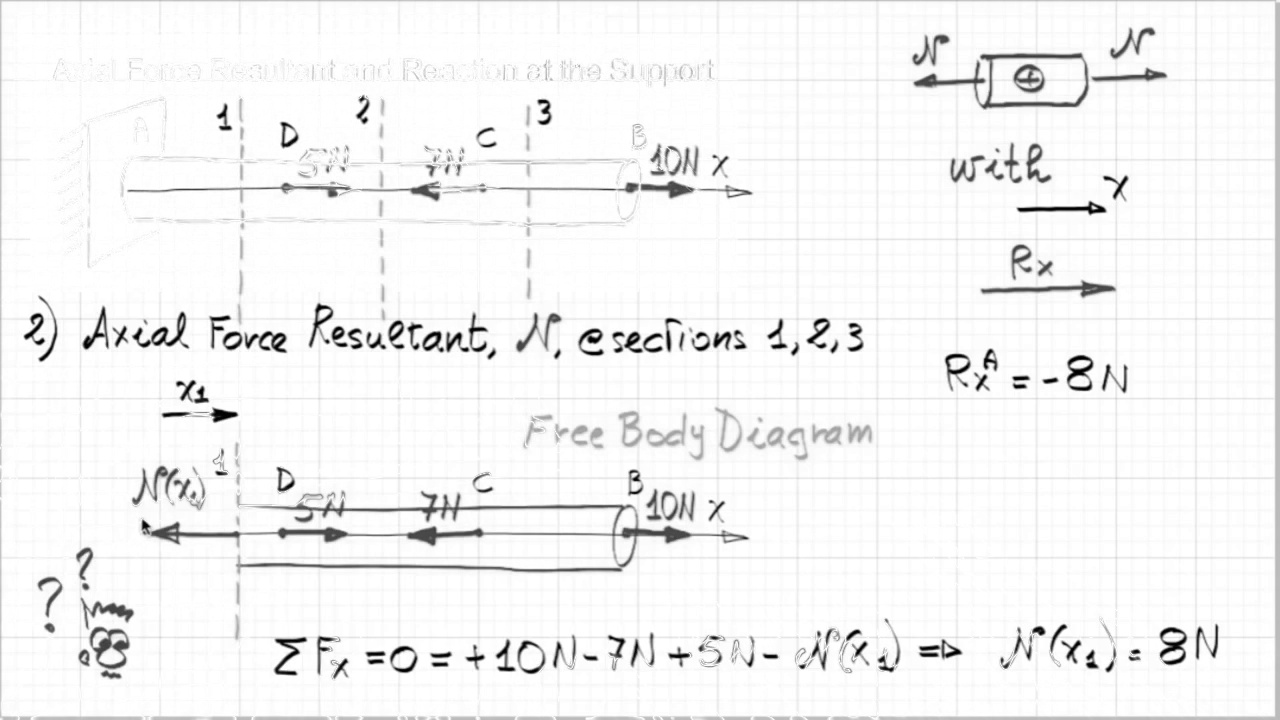 Axial Force Resultant and Reaction at the Support
N N
1 2 3
A D 5N 7N C B 10N x
with
x
Rx
2) Axial Force Resultant, N, @sections 1,2,3
RxA = -8N
x1
Free Body Diagram
N(x1) 1 D 5N 7N C B 10N x
? ?
ΣFx = 0 = +10N - 7N + 5N - N(x1) => N(x1) = 8N